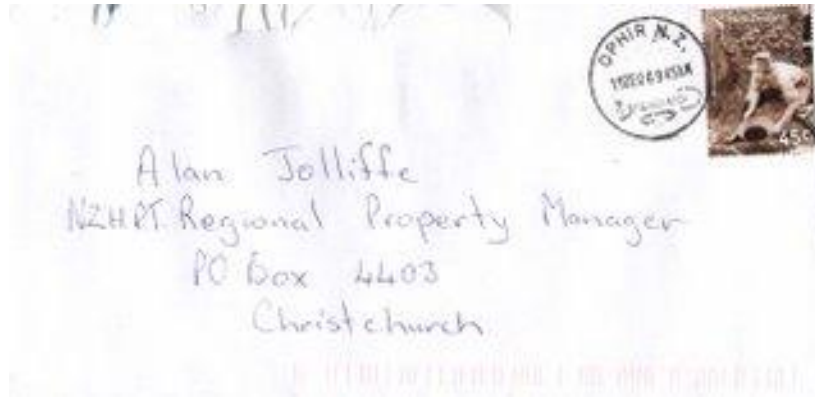 OPHIR N.Z.
45c
Alan Jolliffe
NZHPT Regional Property Manager
PO Box 4403
Christchurch